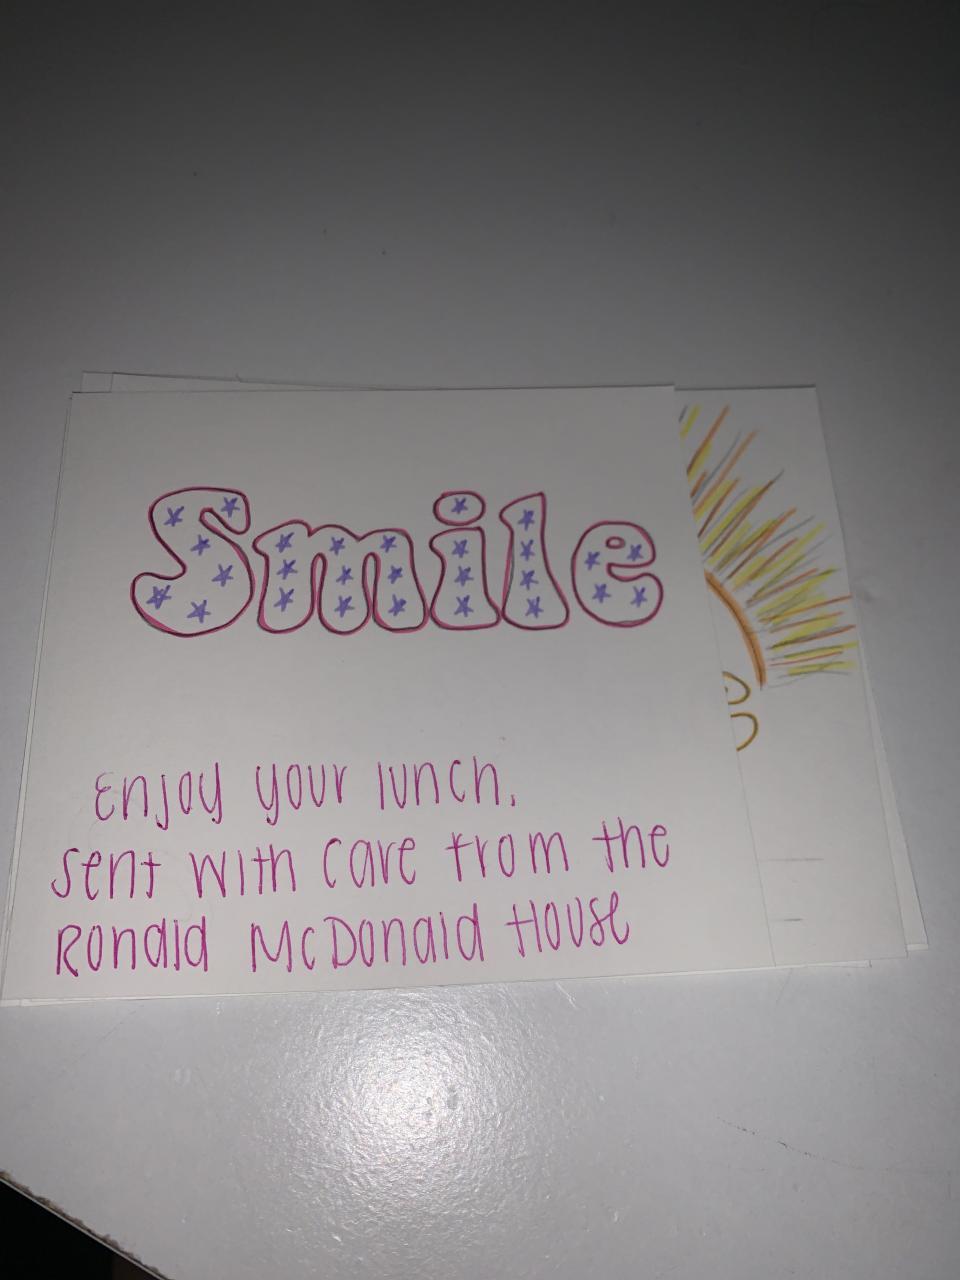 Smile
Enjoy your lunch.
Sent with care from the
Ronald McDonald House